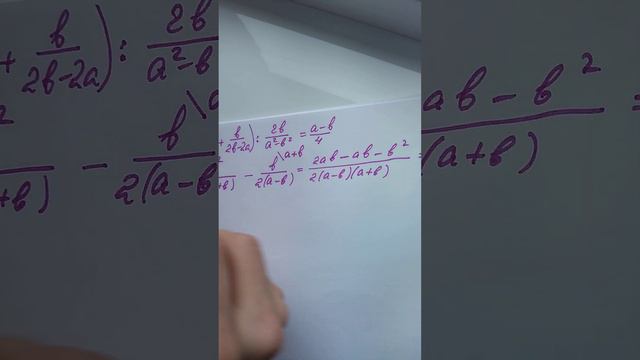 + b/(2b-2a)) : 2b/(a²-b²) = (a-b)/4
+b) - b\a+b/(2(a-b)) = (2ab-ab-b²)/(2(a-b)(a+b)) =